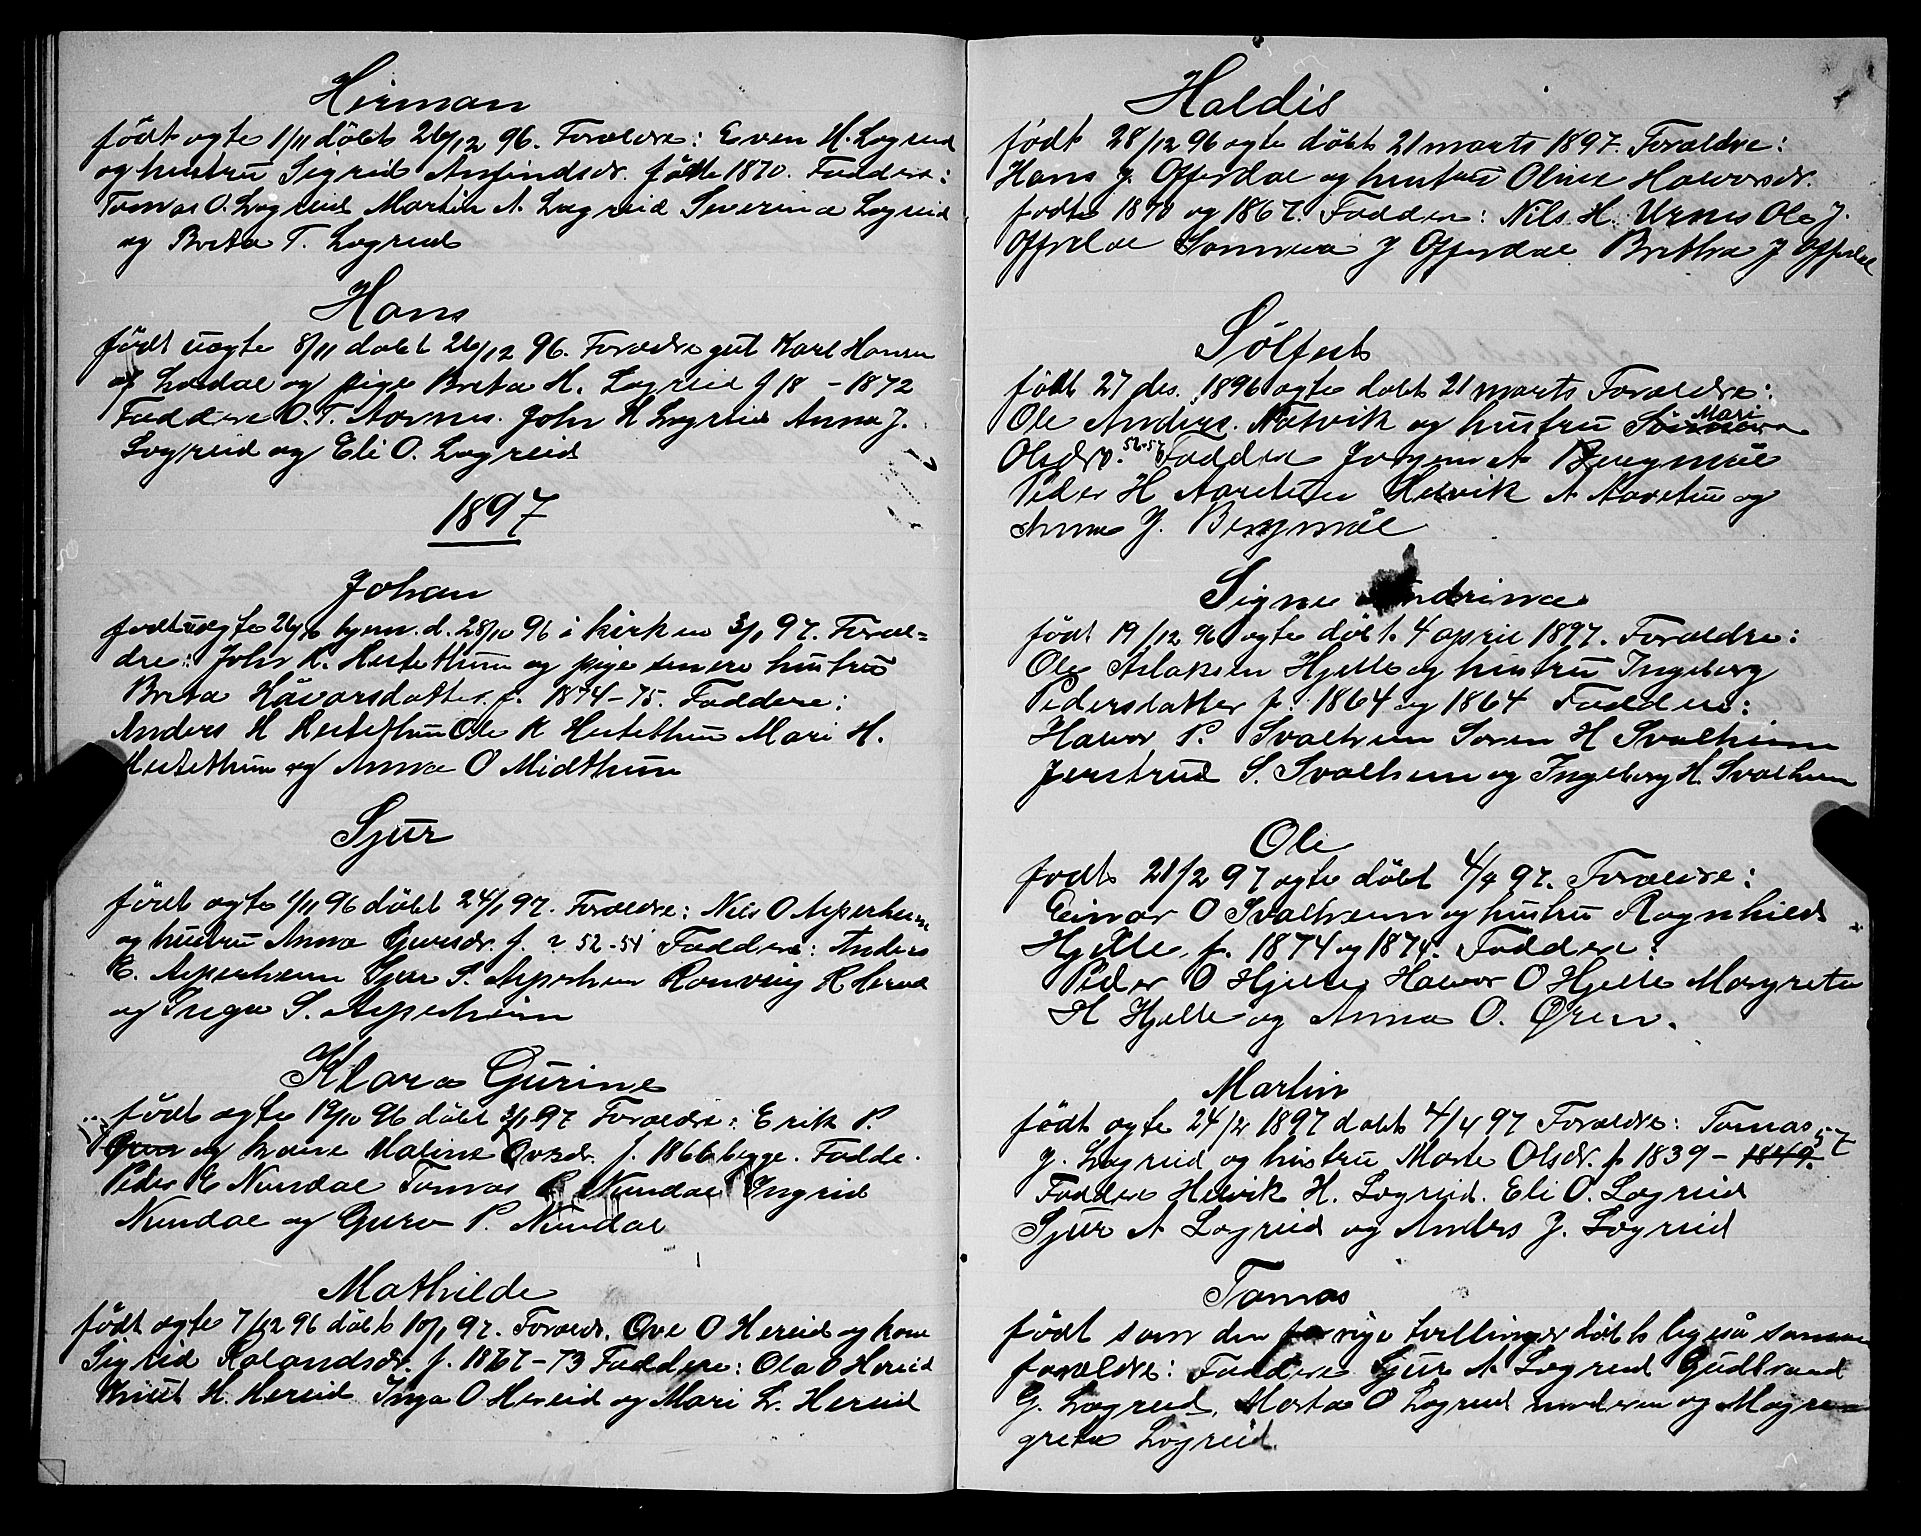 Herman
født ogte 1/11 døbt 26/12 96. Foroldre: Even H. Logreid
og hustru Sigrid Anfindsdr. fødte 1870. Faddere:
Tomas O. Logreid Martin A Logreid Severina Logreid
og Breta T. Logreid
Hans
født uogte 8/11 dobt 26/12 96. Foroldre gut Karl Hansen
af Lordal og pige Breta H. Logreid f 18 - 1872
Faddere O. T. Aornes. John H Logreid Anna J.
Logreid og Eli O. Logreid
1897
Johan
født uogte 26/10 hjem. d. 28/10 96 i kirken 3/1 97. Forol=
dre: John K. Hestethun og pige senere hustru
Breta Håvarsdatter. f. 1874-75. Faddere:
Anders H Hestethun Ole K Hestethun Mari H.
Hestethun og Anna O Midthun
Sjur
født ogte 1/11 96 døbt 24/1 97. Foroldre: Nils O Asperheim
og hustru Anna Gjursdr. f. 52-54 Faddere: Anders
E. Asperheim Sjur S. Asperheim Ronveig H Hereid
og Inga S. Asperheim
Klara Gurine
født ogte 19/10 96 døbt 3/1 97 Foroldre: Erik P.
og kone Maline Ovedr. f. 1866 begge. Fadde.
Peder E Nundal Tomas P Nundal Ingrid
Nundal og Guro P. Nundal
Mathilde
født ogte 7/12 96 døbt 10/1 97. Foroldr. Ove O Hereid og kone
Sigrid Rolandsdr. f. 1867-73 Faddere: Ola O Hereid
Knut H. Hereid Inga O Hereid og Mari L. Hereid
Haldis
født 28/12 96 ogte døbt 21 marts 1897. Foroldre:
Hans J. Offerdal og hustru Oline Havorsdr.
fødte 1870 og 1867. Faddere: Nils H. Urnes Ole J.
Offerdal Sonneva J Offerdal Brithe J Offerdal
Sølfest
født 27 des. 1896 ogte dobt 21 marts Foroldre:
Ole Anders. Natvik og hustru Sonneva Mari
Olsdr. 52-57 Faddere Jorgen A Bergmål
Peder H Aaretun Helvik A Aaretun og
Anna J. Bergmål
Signe Andrina
født 19/12 96 ogte døbt 4 april 1897. Foroldre:
Ole Aslaksen Hjelle og hustru Ingeborg
Pedersdatter f. 1864 og 1864 Faddere:
Havor P. Svalheim Soren H Svalheim
Jerstrud S. Svalheim og Ingeborg H. Svalheim
Ole
født 21/2 97 ogte døbt 4/4 97. Foroldre:
Einar O Svalheim og hustru Ragnhild
Hjelle f. 1874 og 1874. Faddere:
Peder O Hjelle Havor O Hjelle Margreta
H Hjelle og Anna O. Øren.
Martin
født ogte 24/2 1897 dobt 4/4 97 Foroldre: Tomas
J. Logreid og hustru Marta Olsdr. f 1839 - 1849. 57
Faddere Helvik H. Logreid. Eli O. Logreid
Sjur A Logreid og Anders J. Logreid
Tomas
født som den forrige tvillinger døbt ligeså samme
foroldre: Faddere Sjur A Logreid Gudbrand
G. Logreid, Marta O Logreid moderen og Magre
greta Logreid.